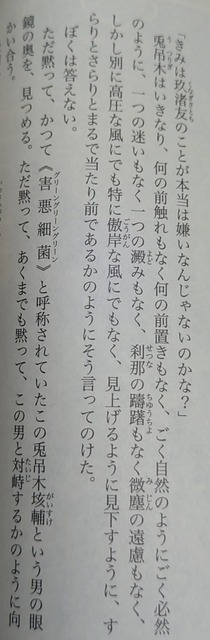 「きみは玖渚友のことが本当は嫌いなんじゃないのかな？」
兎吊木はいきなり、何の前触れもなく何の前置きもなく、ごく自然のようにごく必然
のように、一つの迷いもなく一つの澱みもなく、刹那の躊躇もなく微塵の遠慮もなく、
しかし別に高圧な風にでも特に傲岸な風にでもなく、見上げるように見下すように、す
らりとさらりとまるで当たり前であるかのようにそう言ってのけた。
ぼくは答えない。
ただ黙って、かつて《害悪細菌》と呼称されていたこの兎吊木垓輔という男の眼
鏡の奥を、見つめる。ただ黙って、あくまでも黙って、この男と対峙するかのように向
かい合う。